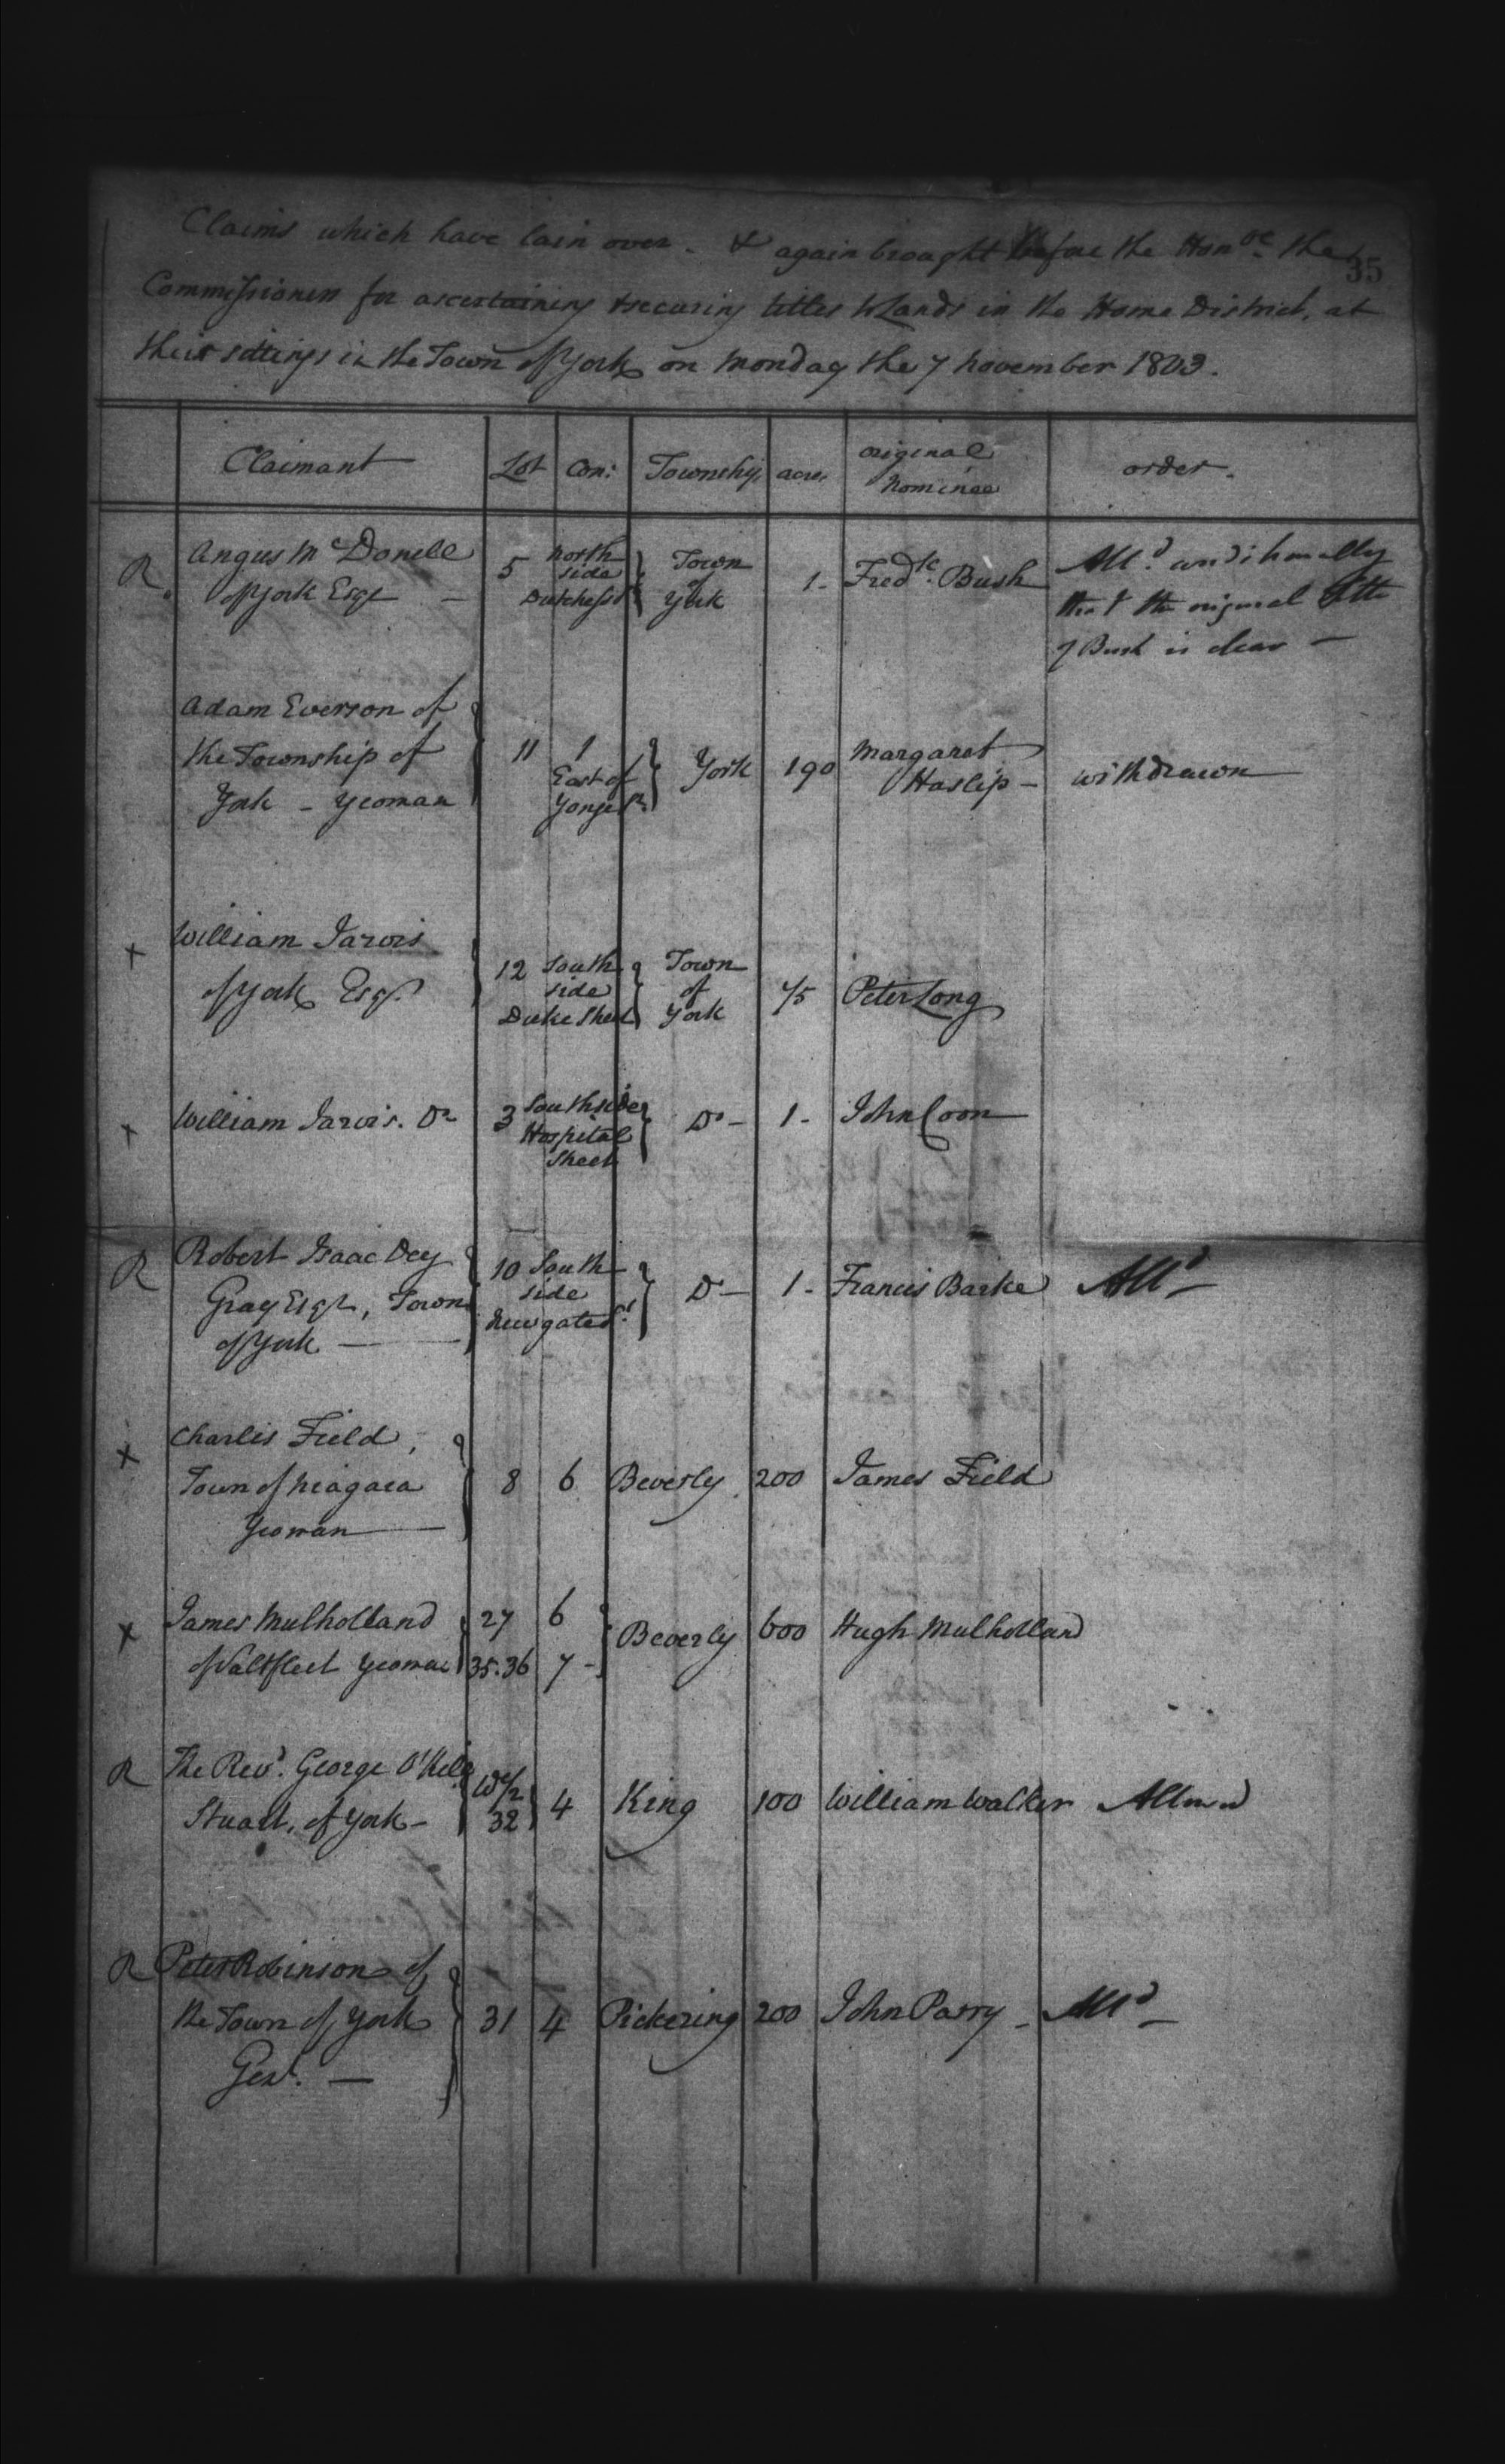 35
Claims which have lain over. & again brought before the Honble the
Commissioners for ascertaining & securing titles to Lands in the Home District, at
their sittings in the Town of York on Monday the 7 november 1803.
Claimant Lot Con: Township acres original nominee order.
R Angus McDonell 5 north side Dutchess St } Town of York 1- Fredk. Bush Alld. conditionally
of York Esqr — that the original title
of Bush is clear —
Adam Everson of
the Township of 11 1 East of Yonge St. } York 190 Margaret Haslip - withdrawn
York - yeoman
x William Jarvis
of York Esqr. 12 South side Duke Street } Town of York 1/5 Peter Long
x William Jarvis. Do 3 South side Hospital Street } Do - 1- John Coon
R Robert Isaac Dey
Gray Esqr, Town 10 South side Newgate St. } Do - 1- Francis Barke Alld -
of York —
x Charles Field,
Town of Niagara 8 6 Beverly 200 James Field
Yeoman —
x James Mulholland 27 6 } Beverly 600 Hugh Mulholland
of Saltfleet yeoman 35.36 7 -
R The Revd. George O'Kill
Stuart, of York - We/2 32 } 4 King 100 William Walker Allowed
R Peter Robinson of
the Town of York 31 4 Pickering 200 John Parry - Alld -
Gent. —